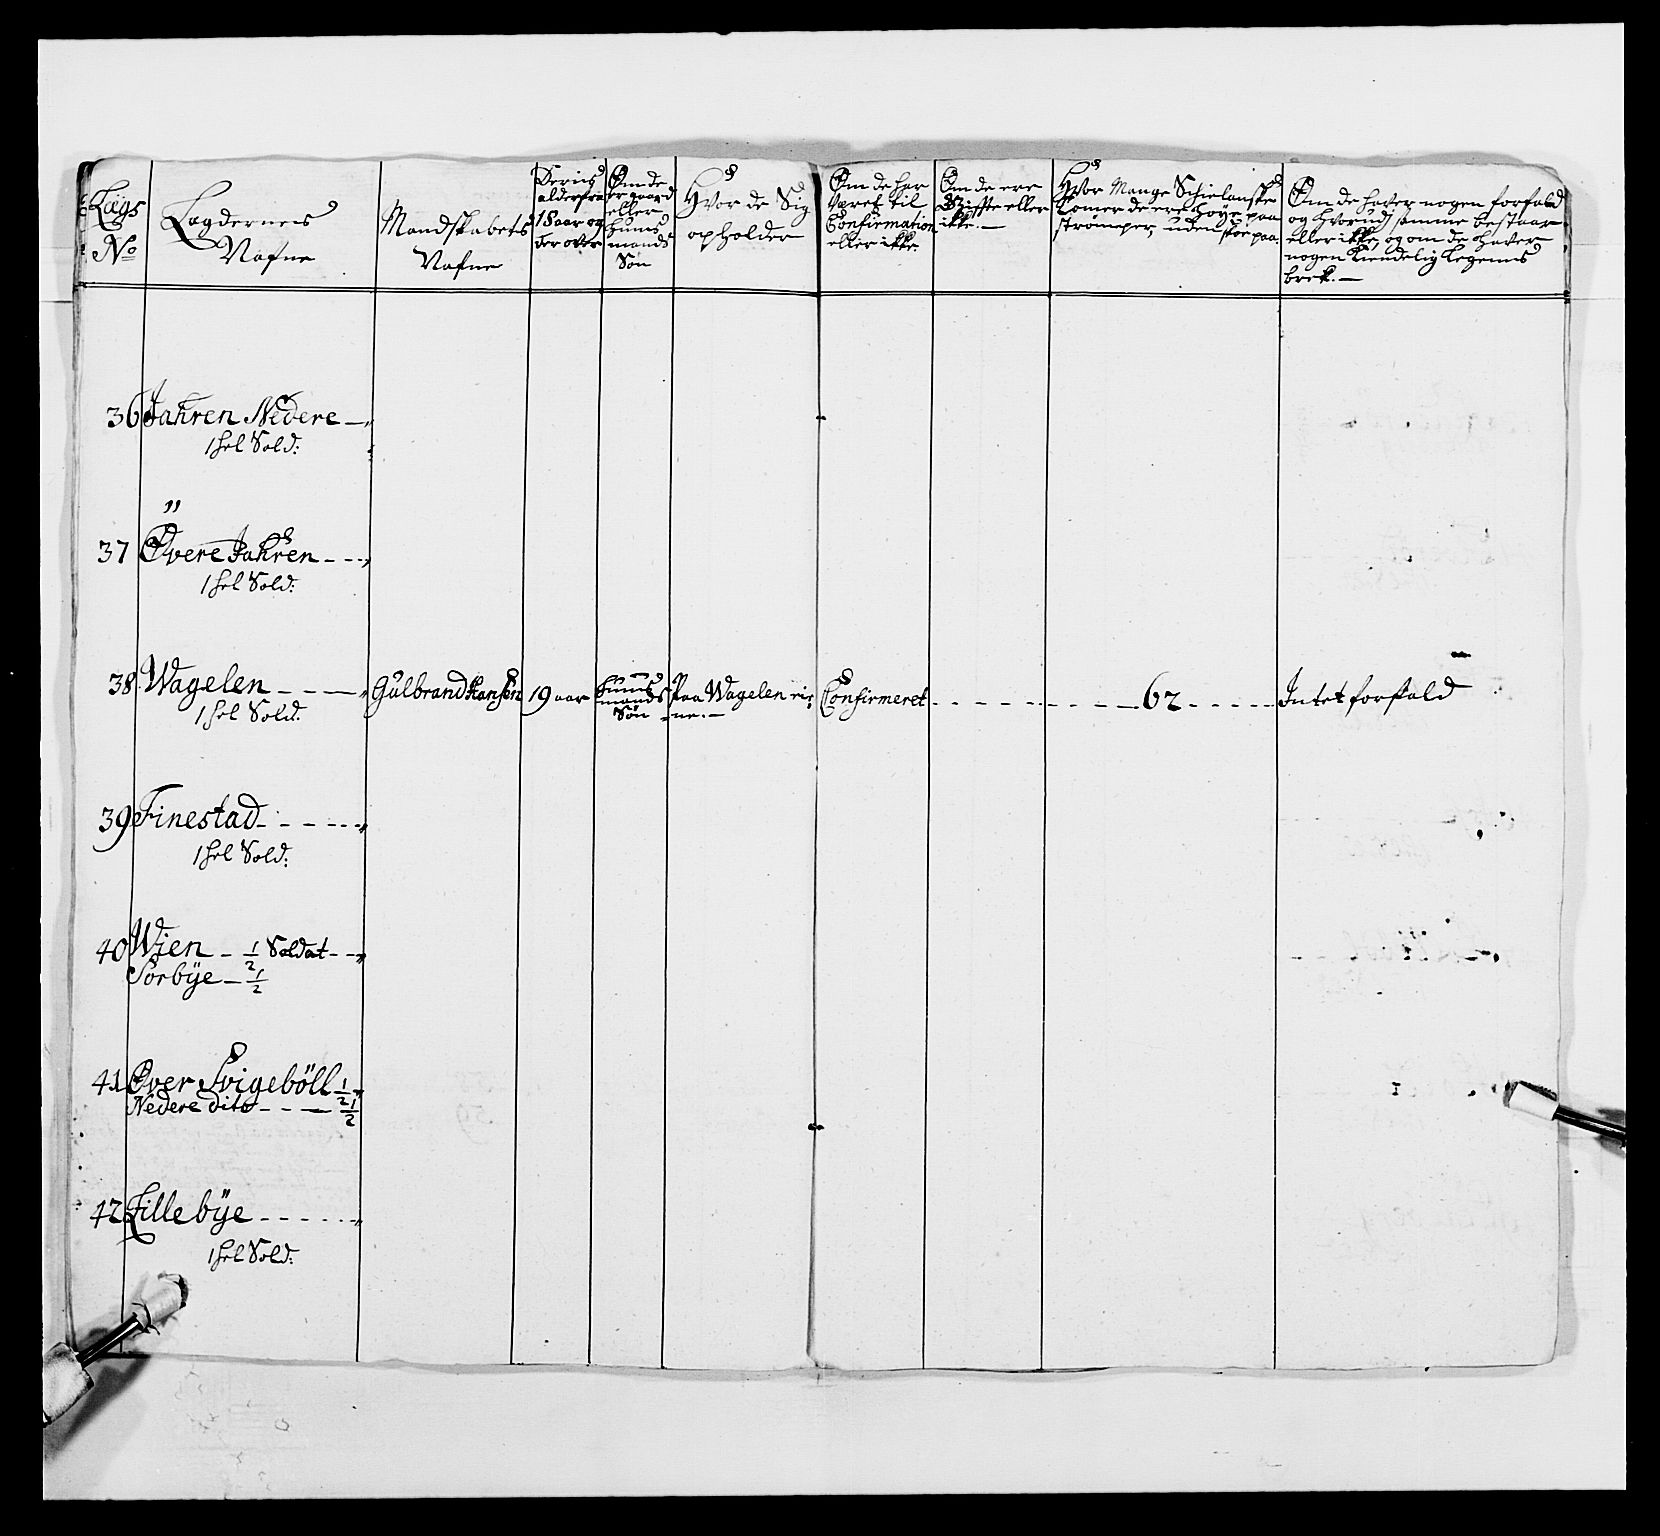 Lægs
No
Lægdernes
Nafne
Mandskabets
Nafne
Deriis
alder fra
18 aar og
der over
Om de
er gaard
eller
huus
mands
Søn
Hvor de Sig
opholder
Om de har
været til
Confirmation
eller ikke
Om de ere
Giifte eller
ikke. —
Hvor Mange Schielanske
Tomer de ere høye paa
strømper, uden skoe paa.
Om de haver nogen forfald
og hvorudj samme bestaar
eller ikke, og om de haver
nogen Kiendelig Legems
brek. —
36 Jahren Nedere —
1 hel Sold:
37 Øvere Jahren - - -
1 hel Sold:
38 Wagelen - - - — Gulbrand Hansen 19 aar huus mands Søn Paa Wagelen ei= ne. — Confirmeret - - - - - - - 62 - - - - - Intet forfald
1 hel Sold:
39 Finestad - - - - - -
1 hel Sold:
40 Wien - 1/2 Soldat - -
Sørbÿe - 1/2
41 Øver Svigebøll 1/2
Nedere dito - - - — 1/2
42 Lillebÿe - - - - - -
1 hel Sold: